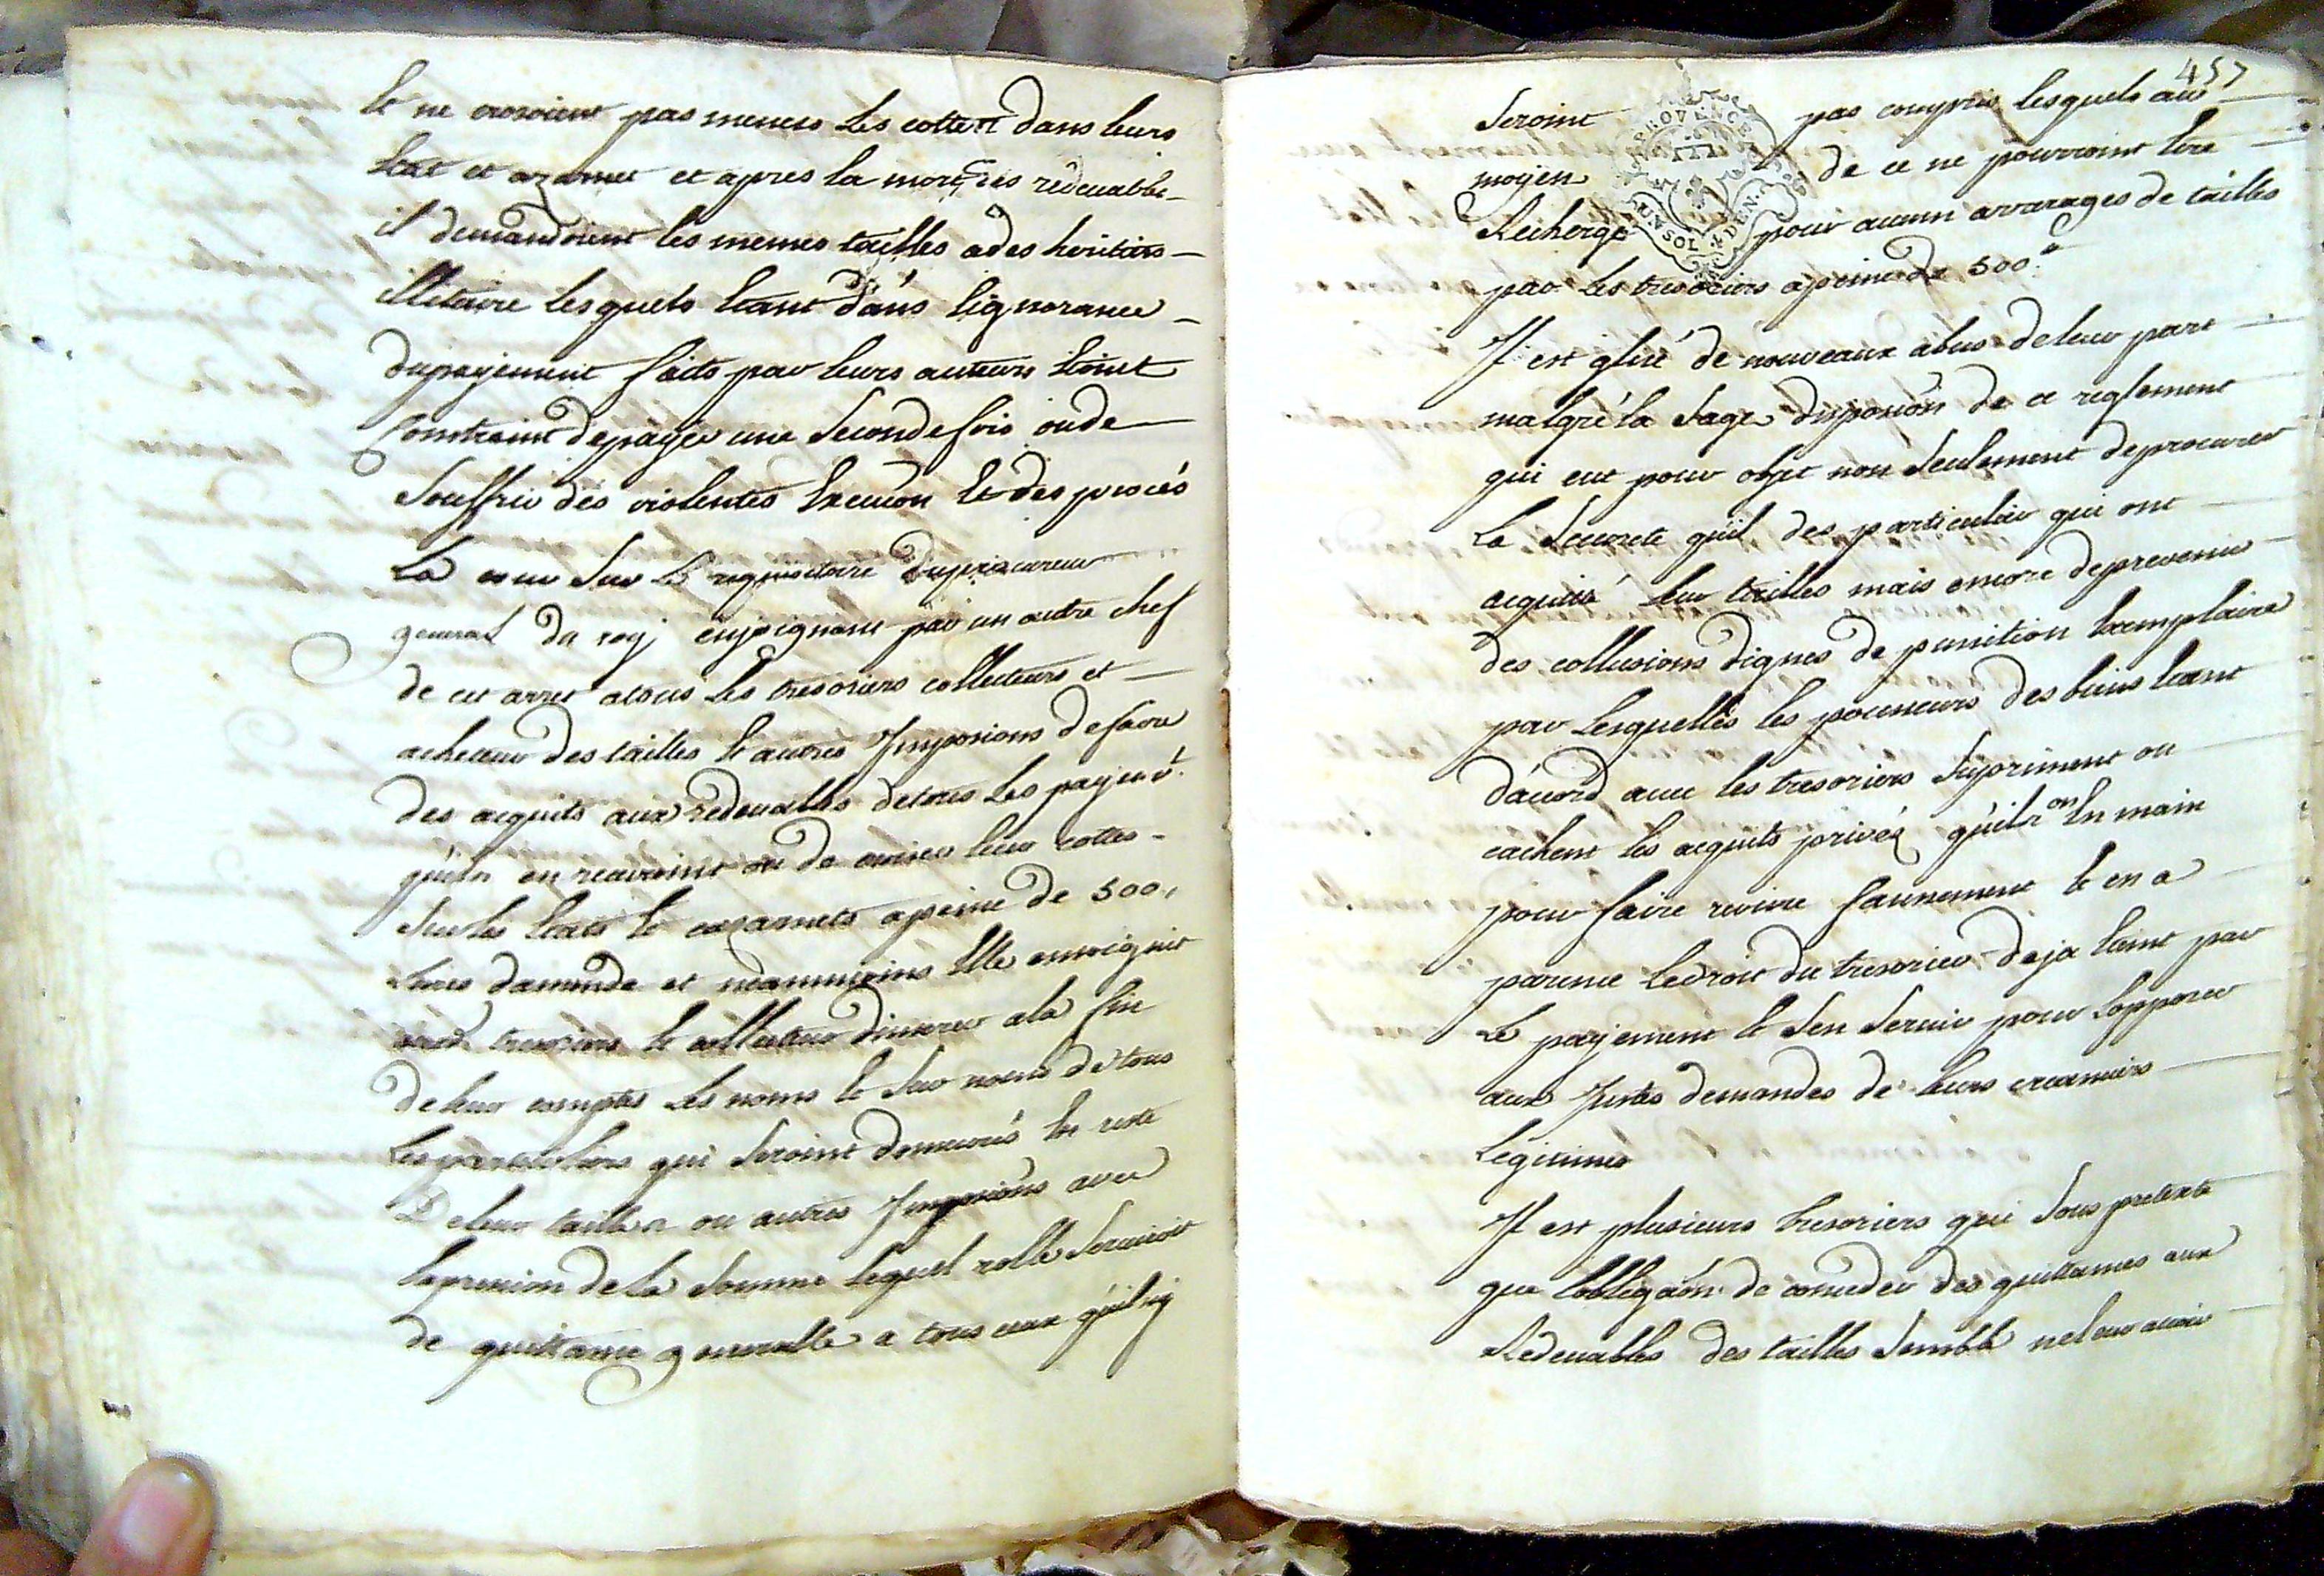 Et ne croisoient pas memes Les cottes dans leurs
Etat et cazarnet et apres la mort des redeuables
il demandoient les memes tailles a des heritiers
illetaire lesquels Etant dans lignorance
du payement faits par leurs auteurs Etoint
Contraint de payer une Seconde fois ou de
Souffrir des violentes Execuon Et des procés
La cour Sur Le requisitoire du procureur
general du roy enjoignant par un autre chef
de cet arret a tous Les tresoriers collecteurs et
acheteur des tailles Et autres Imposions de faire
des acquits aux redeuables de tous Les payemt.
quils en recevroint ou de croiser leur cottes
Sur les Etats Et cazarnets a peine de 500,
Livres damende et neanmoins Elle enjoignit
aux tresoriers Et collecteur dinserer a la fin
de leur comptes Les noms Et Sur noms de tous
Les particuliers qui Seroint demeurés En reste
De leur tailles ou autres Imposions avec
Expression de la Somme lequel rolle Serviroit
de quittance generalle a tous ceux quil ny
457
Seroint pas compris lesquels au
moyen de ce ne pourroint Etre
Recherges pour aucun arrarages de tailles
par Les tresoriers a peine de 500.
PROVENCE
UN SOL 4 DEN.
Il est glisé de nouveaux abus de leur part
malgré la Sage disposion de ce reglement
qui eut pour objet non Seulement de procurer
La Seurete quil des particulier qui ont
acquitté leur tailles mais encore de prevenir
des collusions dignes de punition Exemplaire
par Lesquelles les possesseurs des biens Etant
dacord avec les tresoriers Supriment ou
cachent les acquits privés quils on En main
pour faire revivre faussement Et en a
parence Le droit du tresorier deja Eteint par
Le payement Et Sen Servir pour Lopposer
aux Justes demandes de leurs creanciers
Legitimes
Il est plusieurs tresoriers qui Sous pretexte
que lobligaon de conceder des quittances aux
Redeuables des tailles Semble ne leur avoir